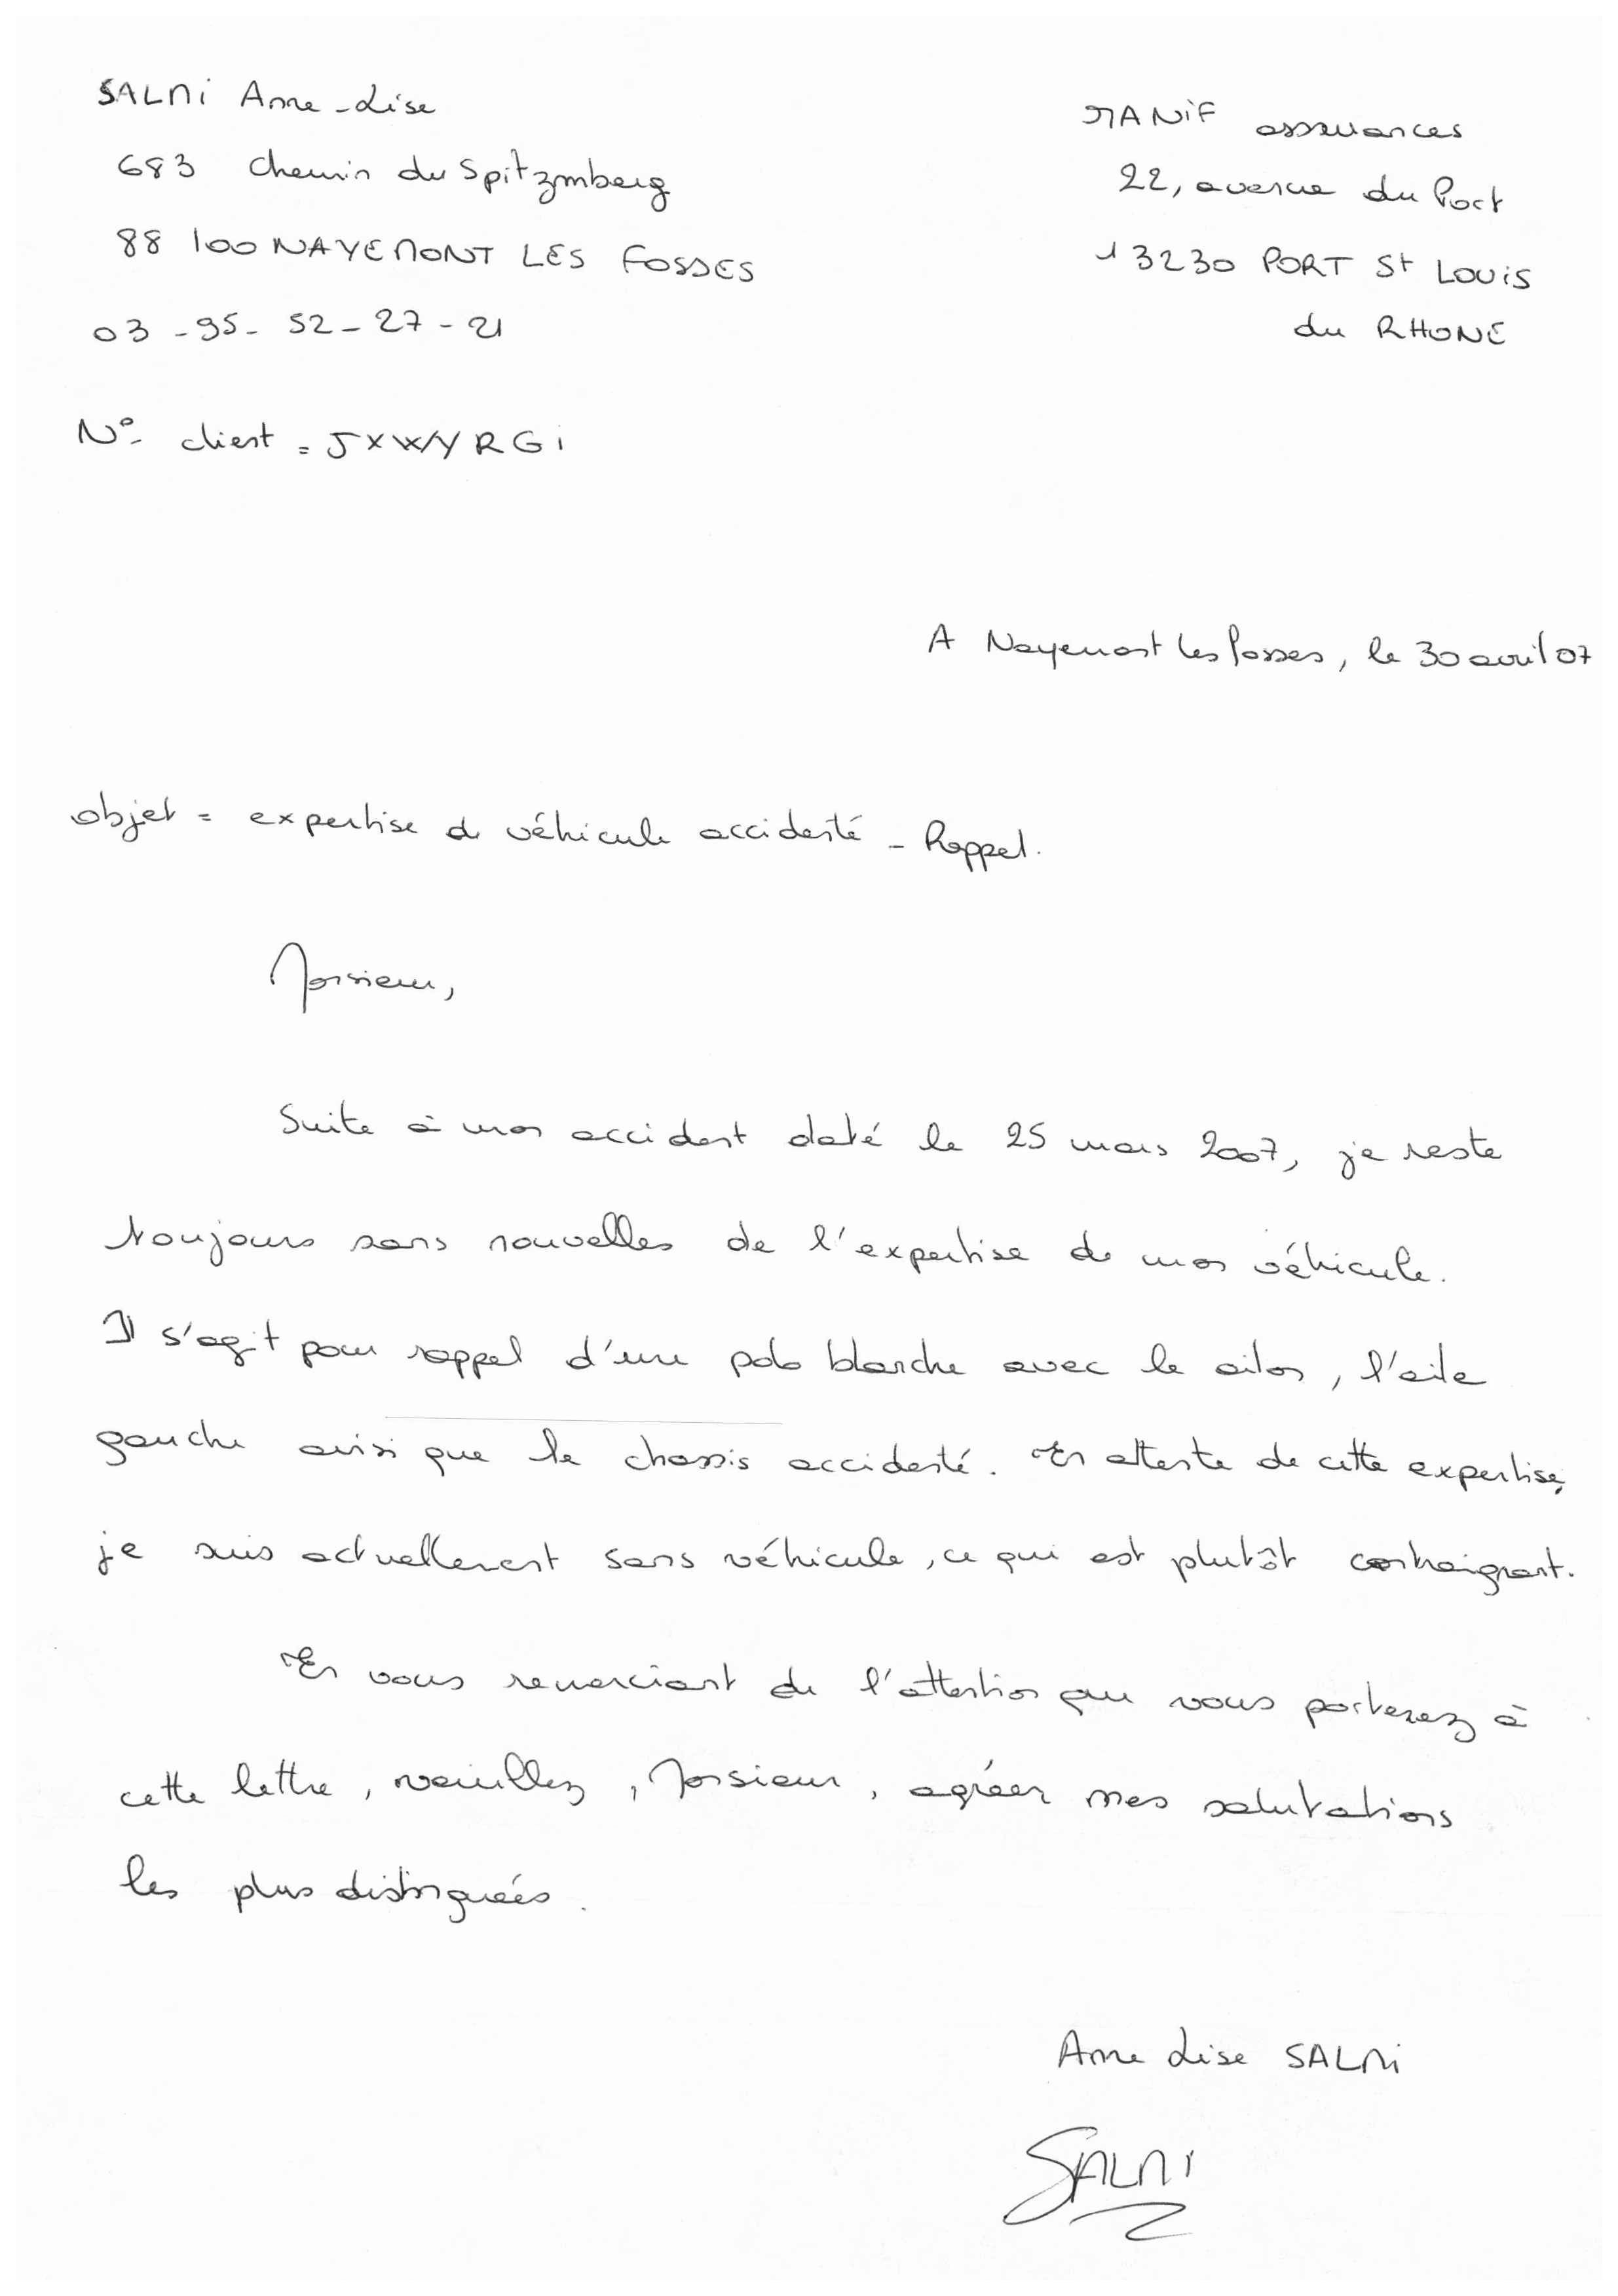 SALMI Anne-Lise
683 chemin du Spitzmberg
88 100 NAYEMONT LES FOSSES
03 - 95 - 52 - 27 - 21
MANIF assurances
22, avenue du Port
13230 PORT St LOUIS
du RHONE
N° client = JXWYRGI
A Nayemont les fosses, le 30 avril 07
objet = expertise de véhicule accidenté - Rappel.
Monsieur,
Suite à mon accident daté le 25 mars 2007, je reste
toujours sans nouvelles de l'expertise de mon véhicule.
Il s'agit pour rappel d'une polo blanche avec le ailon, l'aile
gauche ainsi que le chassis accidenté. En attente de cette expertise,
je suis actuellement sans véhicule, ce qui est plutôt contraignant.
En vous remerciant de l'attention que vous porterez à
cette lettre, veuillez, Monsieur, agréer mes salutations
les plus distinguées.
Anne Lise SALMI
SALMI